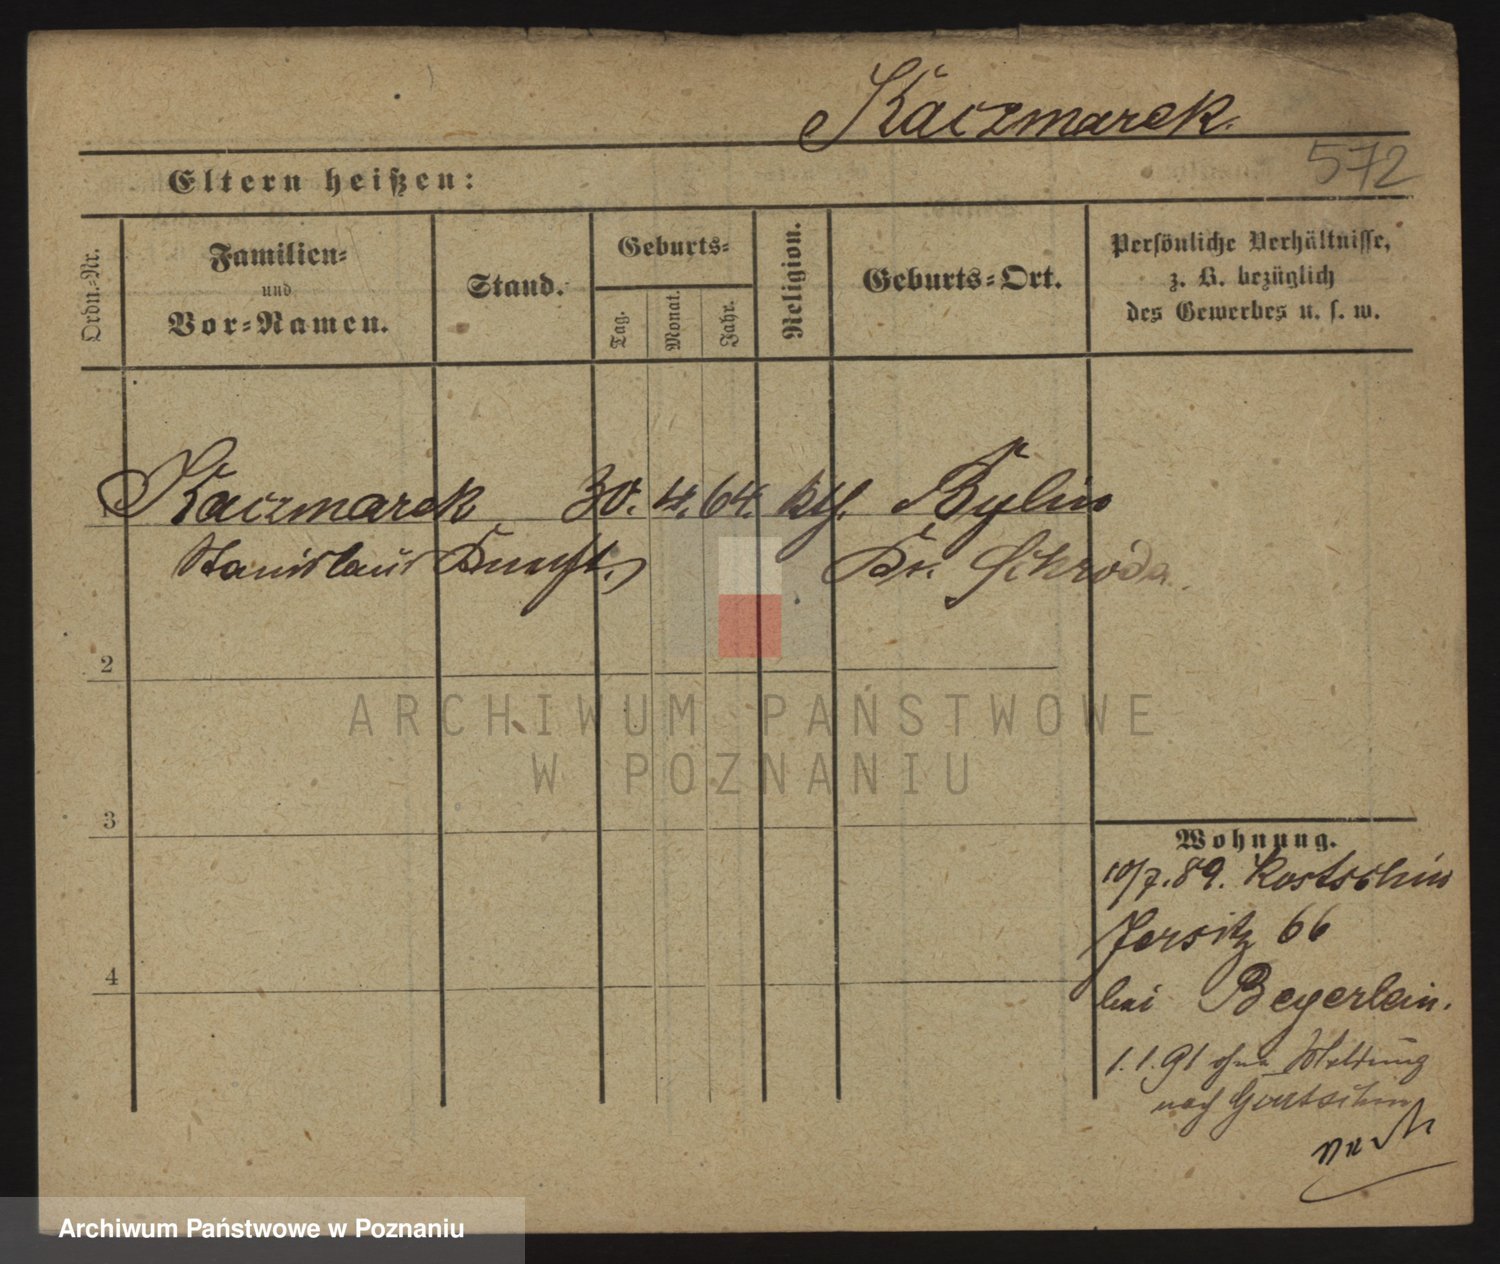 Kaczmarek.
572
Eltern heißen:
Ordn.-Nr.
Familien-
und
Vor-Namen.
Stand.
Geburts-
Tag.
Monat.
Jahr.
Religion.
Geburts-Ort.
Persönliche Verhältnisse,
z. B. bezüglich
des Gewerbes u. s. w.
Kaczmarek 30. 4. 64. kth. Bylin
Stanislaus Kr. Schroda
2
3
4
Wohnung.
10/7.89. Kostschin
Jersitz 66
bei Beyerlein.
1.1.91 ohne Meldung
nach
ARCHIWUM PAŃSTWOWE
W POZNANIU
Archiwum Państwowe w Poznaniu